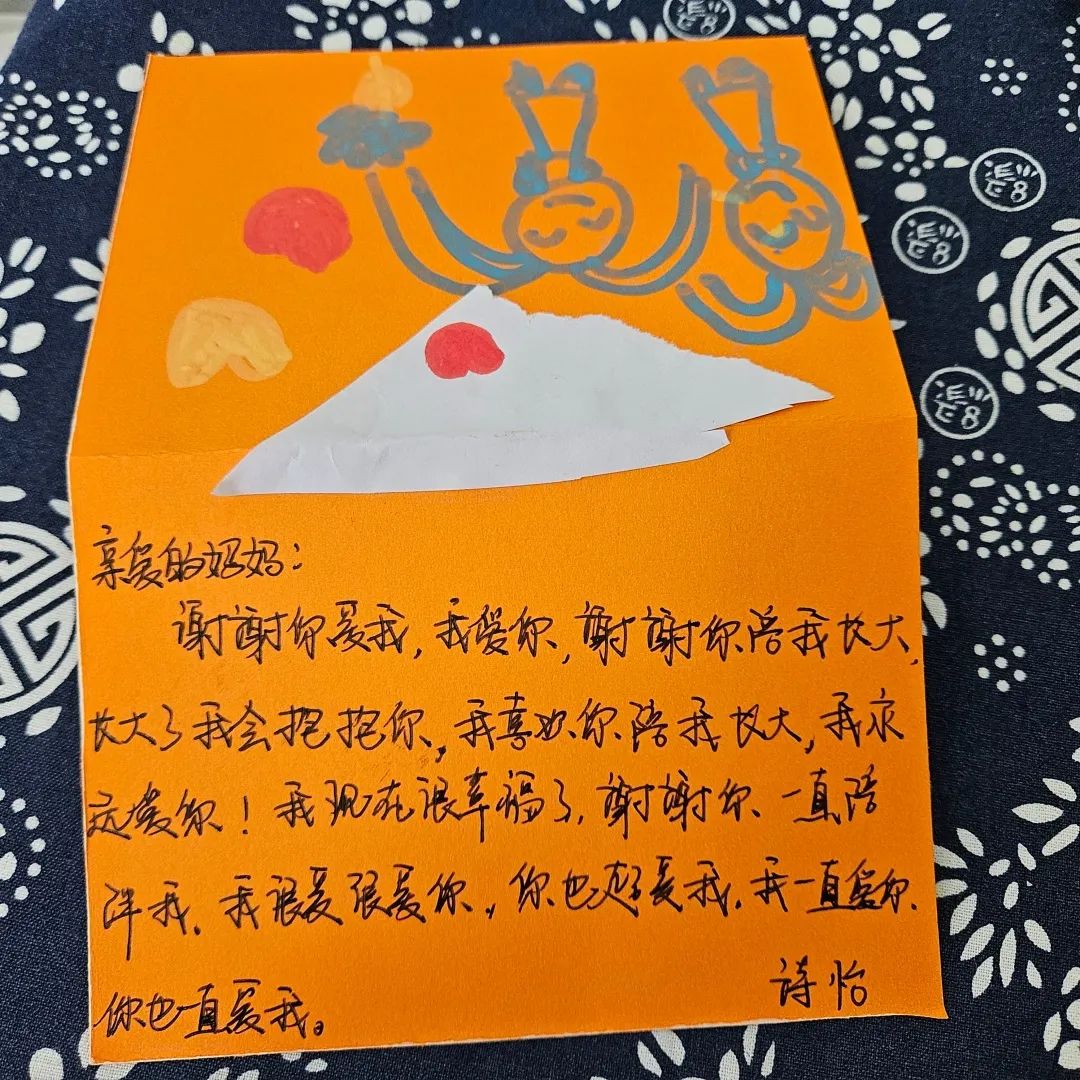 亲爱的妈妈：
谢谢你爱我，我爱你，谢谢你陪我长大，
长大了我会抱抱你，我喜欢你陪我长大，我永
远爱你！我现在很幸福了，谢谢你一直陪
伴我，我很爱很爱你，你也超爱我，我一直爱你，
你也一直爱我。
诗怡